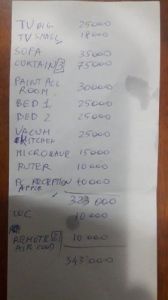 TV BIG 25000
TV SMALL 18000
SOFA 35000
CURTAIN 75000
PAINT ALL
ROOM 30000
BED 1 25000
BED 2 25000
VACUM 25000
KITCHEN
MICRONAUR 15000
RUTER 10000
PC RECEPTION 40000
APPLE
323000
10000
REMOTE
AIR COND 10000
343000